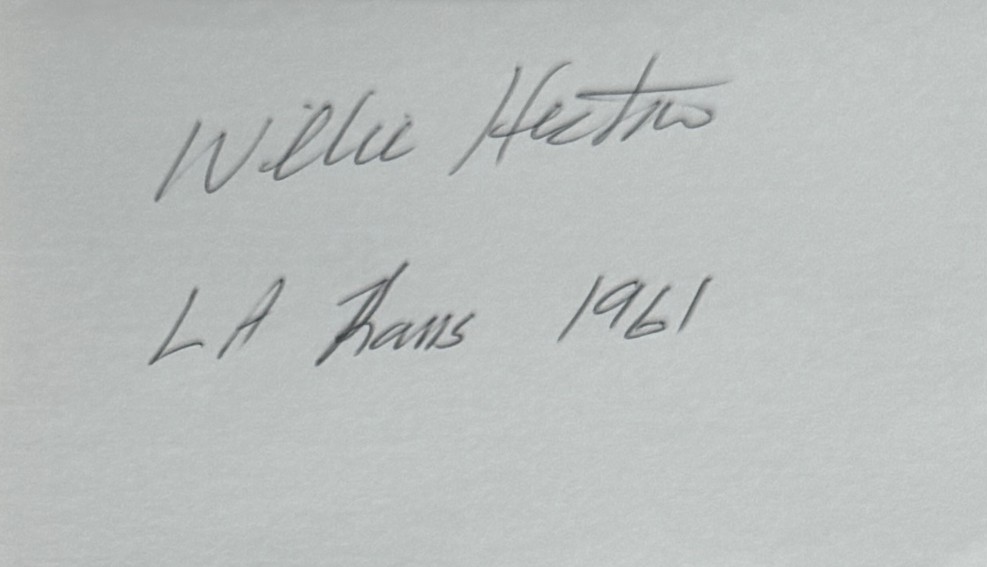 Willie Hector
LA Rams 1961